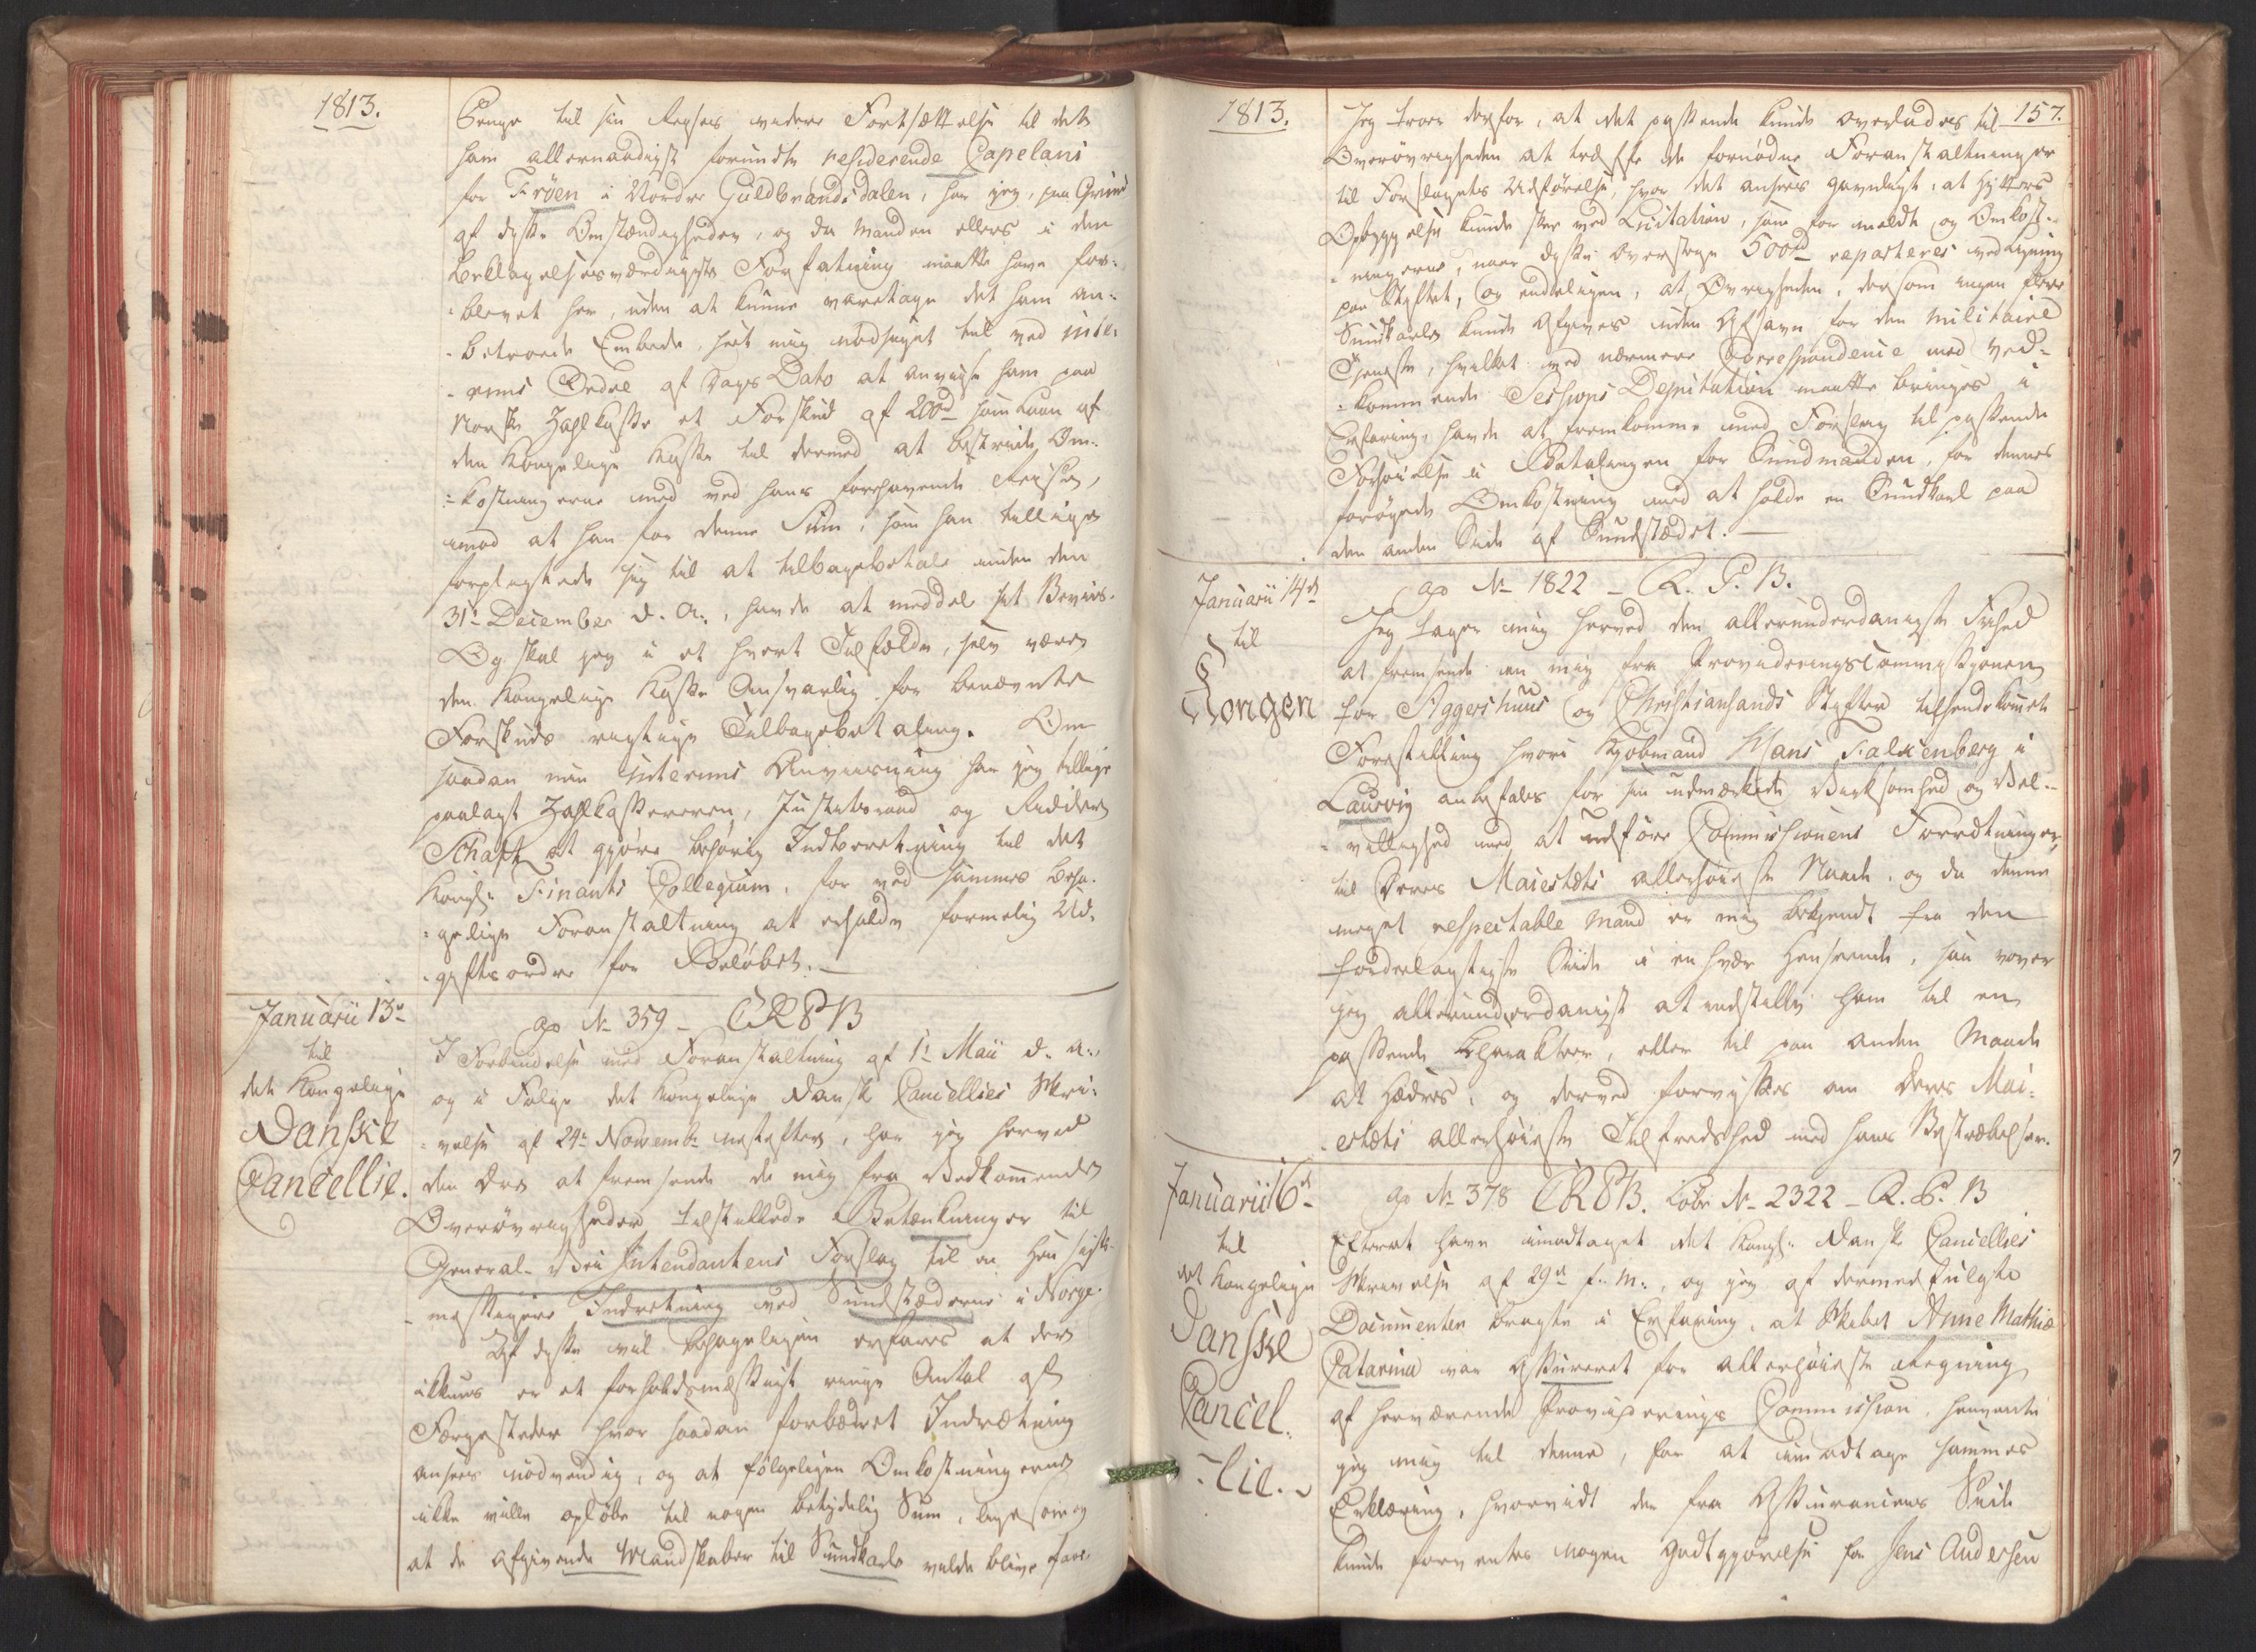 1813.
Penge til sin Reyses videre Fortsættelse til det
ham allernaadigst forundte residerende Capelani
for Fröen i Nordre Guldbrandsdalen, har jeg, paa Grund
af disse Omstændigheder, og da Manden ellers i den
beklagelsesværdigste Forfatning maatte have for-
-blevet her, uden at kunne varetage det ham an-
-betroede Embede, seet mig nødsaget til ved inte-
-rims Ordre af Dags Dato at anvise ham paa
Norske Zahlkasse et Forskud af 200rd som Laan af
den Kongelige Kasse til dermed at bestride Om-
-kostningerne med ved hans forehavende Reyse,
imod at han for denne Sum, som han tillige
forpligtede sig til at tilbagebetale inden den
31te December d. A., havde at meddele sit Beviis.
Og skal jeg i et hvert Tilfælde, selv være
den Kongelige Kasse Ansvarlig for benævnte
Forskuds rigtige Tilbagebetaling. Om
saadan min interims Anviisning har jeg tillige
paalagt Zahlkassereren, Justitsraad og Ridder
Schaft at gjøre behørig Indberetning til det
Kongl. Finants Collegium, for ved sammes beha-
-gelige Foranstaltning at erholde formelig Ud-
-giftsordre for Beløbet.
Januarii 13de
til
det Kongelige
Danske
Cancellie.
ap No 359 - CRPB
I Forbindelse med Foranstaltning af 1te Maii d. A.,
og i Følge det Kongelige Danske Cancellies Skri-
-velse af 24de Novemb. nestefter, har jeg herved
den Ære at fremsende de mig fra Vedkommende
Overøvrigheder tilstillede Betænkninger til
General-Vei Intendantens Forslag til en Hensigts-
-mæssigere Indretning ved Sundstæderne i Norge.
Af disse vil behageligen erfares at der
ikkuns er et forholdsmæssigt ringe Antal af
Færgesteder hvor saadan forbedret Indretning
ansees nødvendig, og at følgeligen Omkostningerne
ikke ville opløbe til nogen betydelig Sum, ligesom og
at de afgivende Mandskaber til Sundkarle vilde blive faae.
1813.
157.
Jeg troer derfor, at det passende kunde overlades til
Overøvrigheden at træffe de fornødne Foranstaltninger
til Forslagets Udførelse, hvor det ansees gavnligt, at Hytters
Opbyggelse kunde skee ved Licitation, som formeldt og Omkost-
-ningerne, naar disse oversteege 500rd reparteres ved Ligning
paa Stiftet, og endeligen, at Øvrigheden, dersom ingen flere
Sundkarle kunde afgives uden Afsavn for den militaire
Tjeneste, hvilket ved nærmere Correspondence med Ved-
-kommende Sessions Deputation maatte bringes i
Erfaring, havde at fremkomme med Forslag til passende
Forhøielse i Betalingen for Sundmanden, for dennes
forøgede Omkostning med at holde en Sundkarl paa
den anden Side af Sundstædet.
Januarii 14de
til
Kongen
ap No 1822 - R. P. B.
Jeg tager mig herved den allerunderdanigste Frihed
at fremsende en mig fra Provideringscommissionen
for Aggershuus og Christiansands Stifter tilhændekommet
Forestilling hvori Kjøbmand Hans Falkenberg i
Laurvig anbefales for sin udmærkede Virksomhed og Vel-
-villighed med at udføre Commissionens Forretninger,
til Deres Maiestæts allerhøieste Naade, og da denne
meget respectable Mand er mig bekjendt fra den
fordeelagtigste Side i en hver Henseende, saa vover
jeg allerunderdanigst at indstille ham til en
passende Charakteer, eller til paa anden Maade
at hædres, og derved forvisses om Deres Mai-
-estæts allerhøieste Tilfredshed med hans Bestræbelser.
Januarii 16de
til
det Kongelige
Danske
Cancel-
-lie.
ap No 378 CRPB. Løbe No 2322 - R. P. B
Efterat have imodtaget det Kongl. Danske Cancellies
Skrivelse af 29de f. M., og jeg af dermedfulgte
Documenter bragte i Erfaring, at Skibet Anne Mathia
Catarina var assureret for allerhøieste Regning
af herværende Providerings Commission, henvendte
jeg mig til denne, for at imodtage sammes
Erklæring, hvorvidt der fra Assurancens Side
kunde forventes nogen Godtgjørelse for Jens Andersen